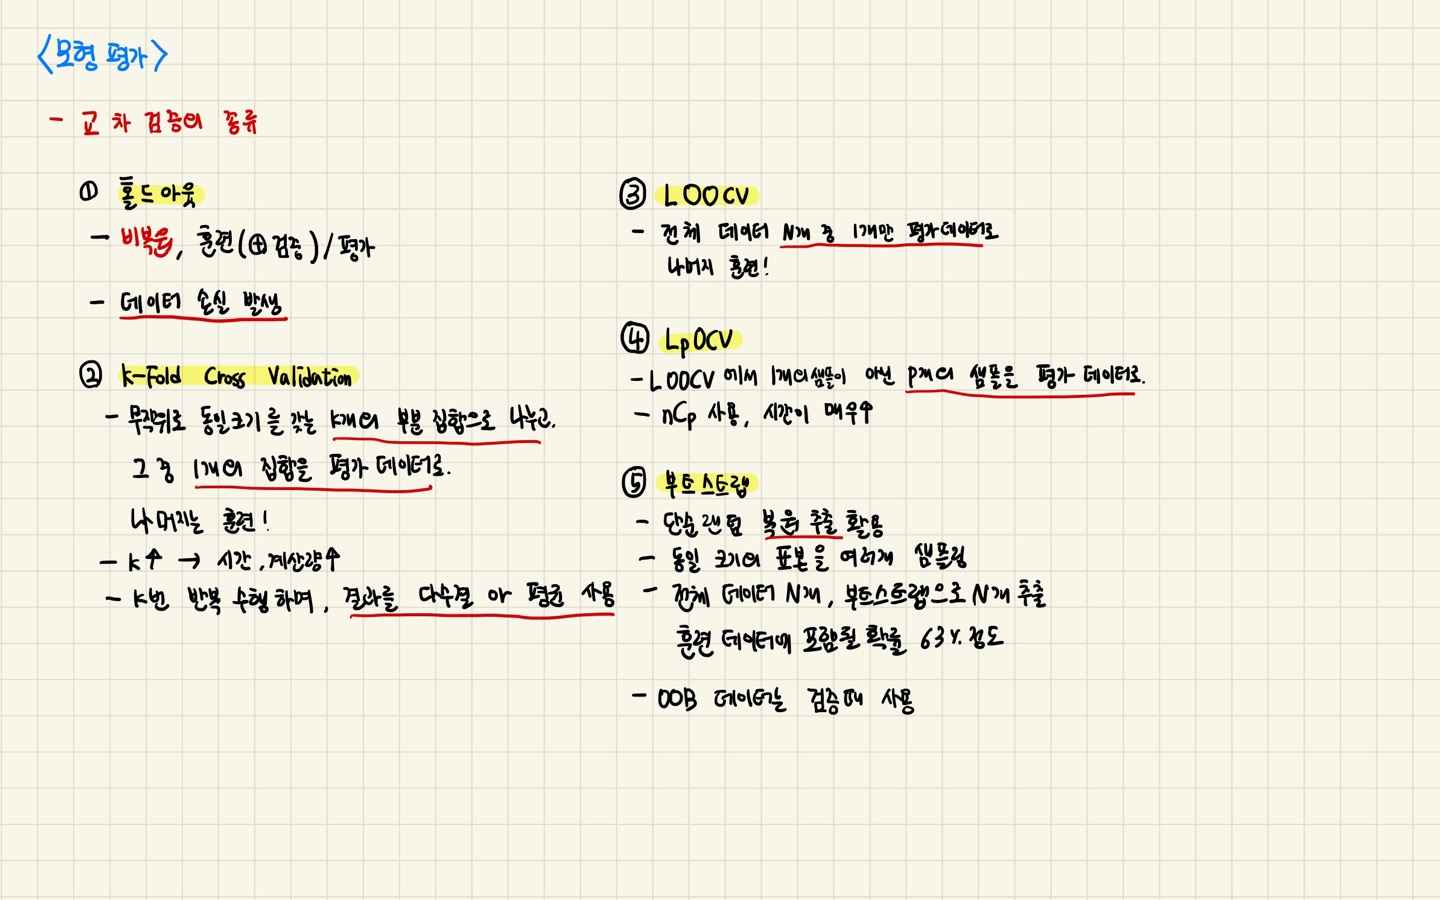 <모형 평가>
- 교차 검증의 종류
① 홀드아웃
- 비복원, 훈련(⊕검증)/평가
- 데이터 손실 발생
② K-Fold Cross Validation
- 무작위로 동일크기를 갖는 K개의 부분 집합으로 나누고,
그 중 1개의 집합을 평가 데이터로.
나머지는 훈련!
- K↑ → 시간, 계산량↑
- K번 반복 수행하며, 결과를 다수결 or 평균 사용
③ LOOCV
- 전체 데이터 N개 중 1개만 평가데이터로
나머지 훈련!
④ LpOCV
- LOOCV에서 1개의샘플이 아닌 P개의 샘플을 평가 데이터로.
- nCp 사용, 시간이 매우↑
⑤ 부트스트랩
- 단순랜덤 복원 추출 활용
- 동일 크기의 표본을 여러개 샘플링
- 전체 데이터 N개, 부트스트랩으로 N개 추출
훈련 데이터에 포함될 확률 63% 정도
- OOB 데이터는 검증때 사용